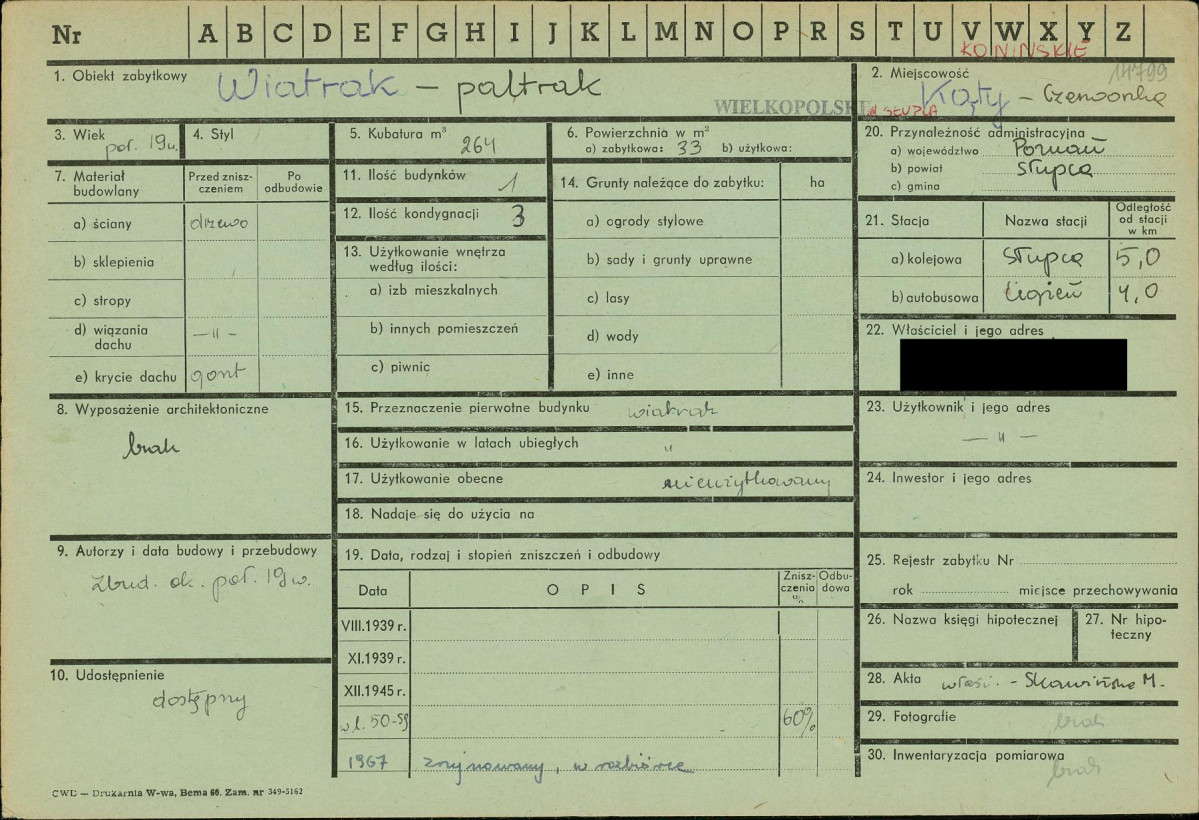 Nr A B C D E F G H I J K L M N O P R S T U V W X Y Z
KONINSKIE
14799
1. Obiekt zabytkowy Wiatrak – paltrak
WIELKOPOLSKI
2. Miejscowość
Kąty – Czerwonka
gm SŁUPCA
3. Wiek poł. 19 w.
4. Styl
5. Kubatura m³ 264
6. Powierzchnia w m²
a) zabytkowa: 33 b) użytkowa:
7. Materiał budowlany
Przed znisz-
czeniem
Po
odbudowie
a) ściany drzewo
b) sklepienia
c) stropy
d) wiązania
dachu –„–
e) krycie dachu gont
8. Wyposażenie architektoniczne
brak
9. Autorzy i data budowy i przebudowy
zbud. ok. poł. 19 w.
10. Udostępnienie
dostępny
11. Ilość budynków 1
12. Ilość kondygnacji 3
13. Użytkowanie wnętrza
według ilości:
a) izb mieszkalnych
b) innych pomieszczeń
c) piwnic
14. Grunty należące do zabytku: ha
a) ogrody stylowe
b) sady i grunty uprawne
c) lasy
d) wody
e) inne
15. Przeznaczenie pierwotne budynku wiatrak
16. Użytkowanie w latach ubiegłych "
17. Użytkowanie obecne nieużytkowany
18. Nadaje się do użycia na
19. Data, rodzaj i stopień zniszczeń i odbudowy
Data OPIS
Znisz-
czenia
%
Odbu-
dowa
VIII.1939 r.
XI.1939 r.
XII.1945 r.
w l. 50-59 60%
1967 zrujnowany, w rozbiórce
20. Przynależność administracyjna
a) województwo Poznań
b) powiat Słupca
c) gmina
21. Stacja Nazwa stacji
Odległość
od stacji
w km
a) kolejowa Słupca 5,0
b) autobusowa 4,0
22. Właściciel i jego adres
23. Użytkownik i jego adres
–„–
24. Inwestor i jego adres
25. Rejestr zabytku Nr
rok miejsce przechowywania
26. Nazwa księgi hipotecznej
27. Nr hipo-
teczny
28. Akta właśc. – Skawińska M.
29. Fotografie brak
30. Inwentaryzacja pomiarowa
brak
CWD — Drukarnia W-wa, Bema 60. Zam. nr 349-5162